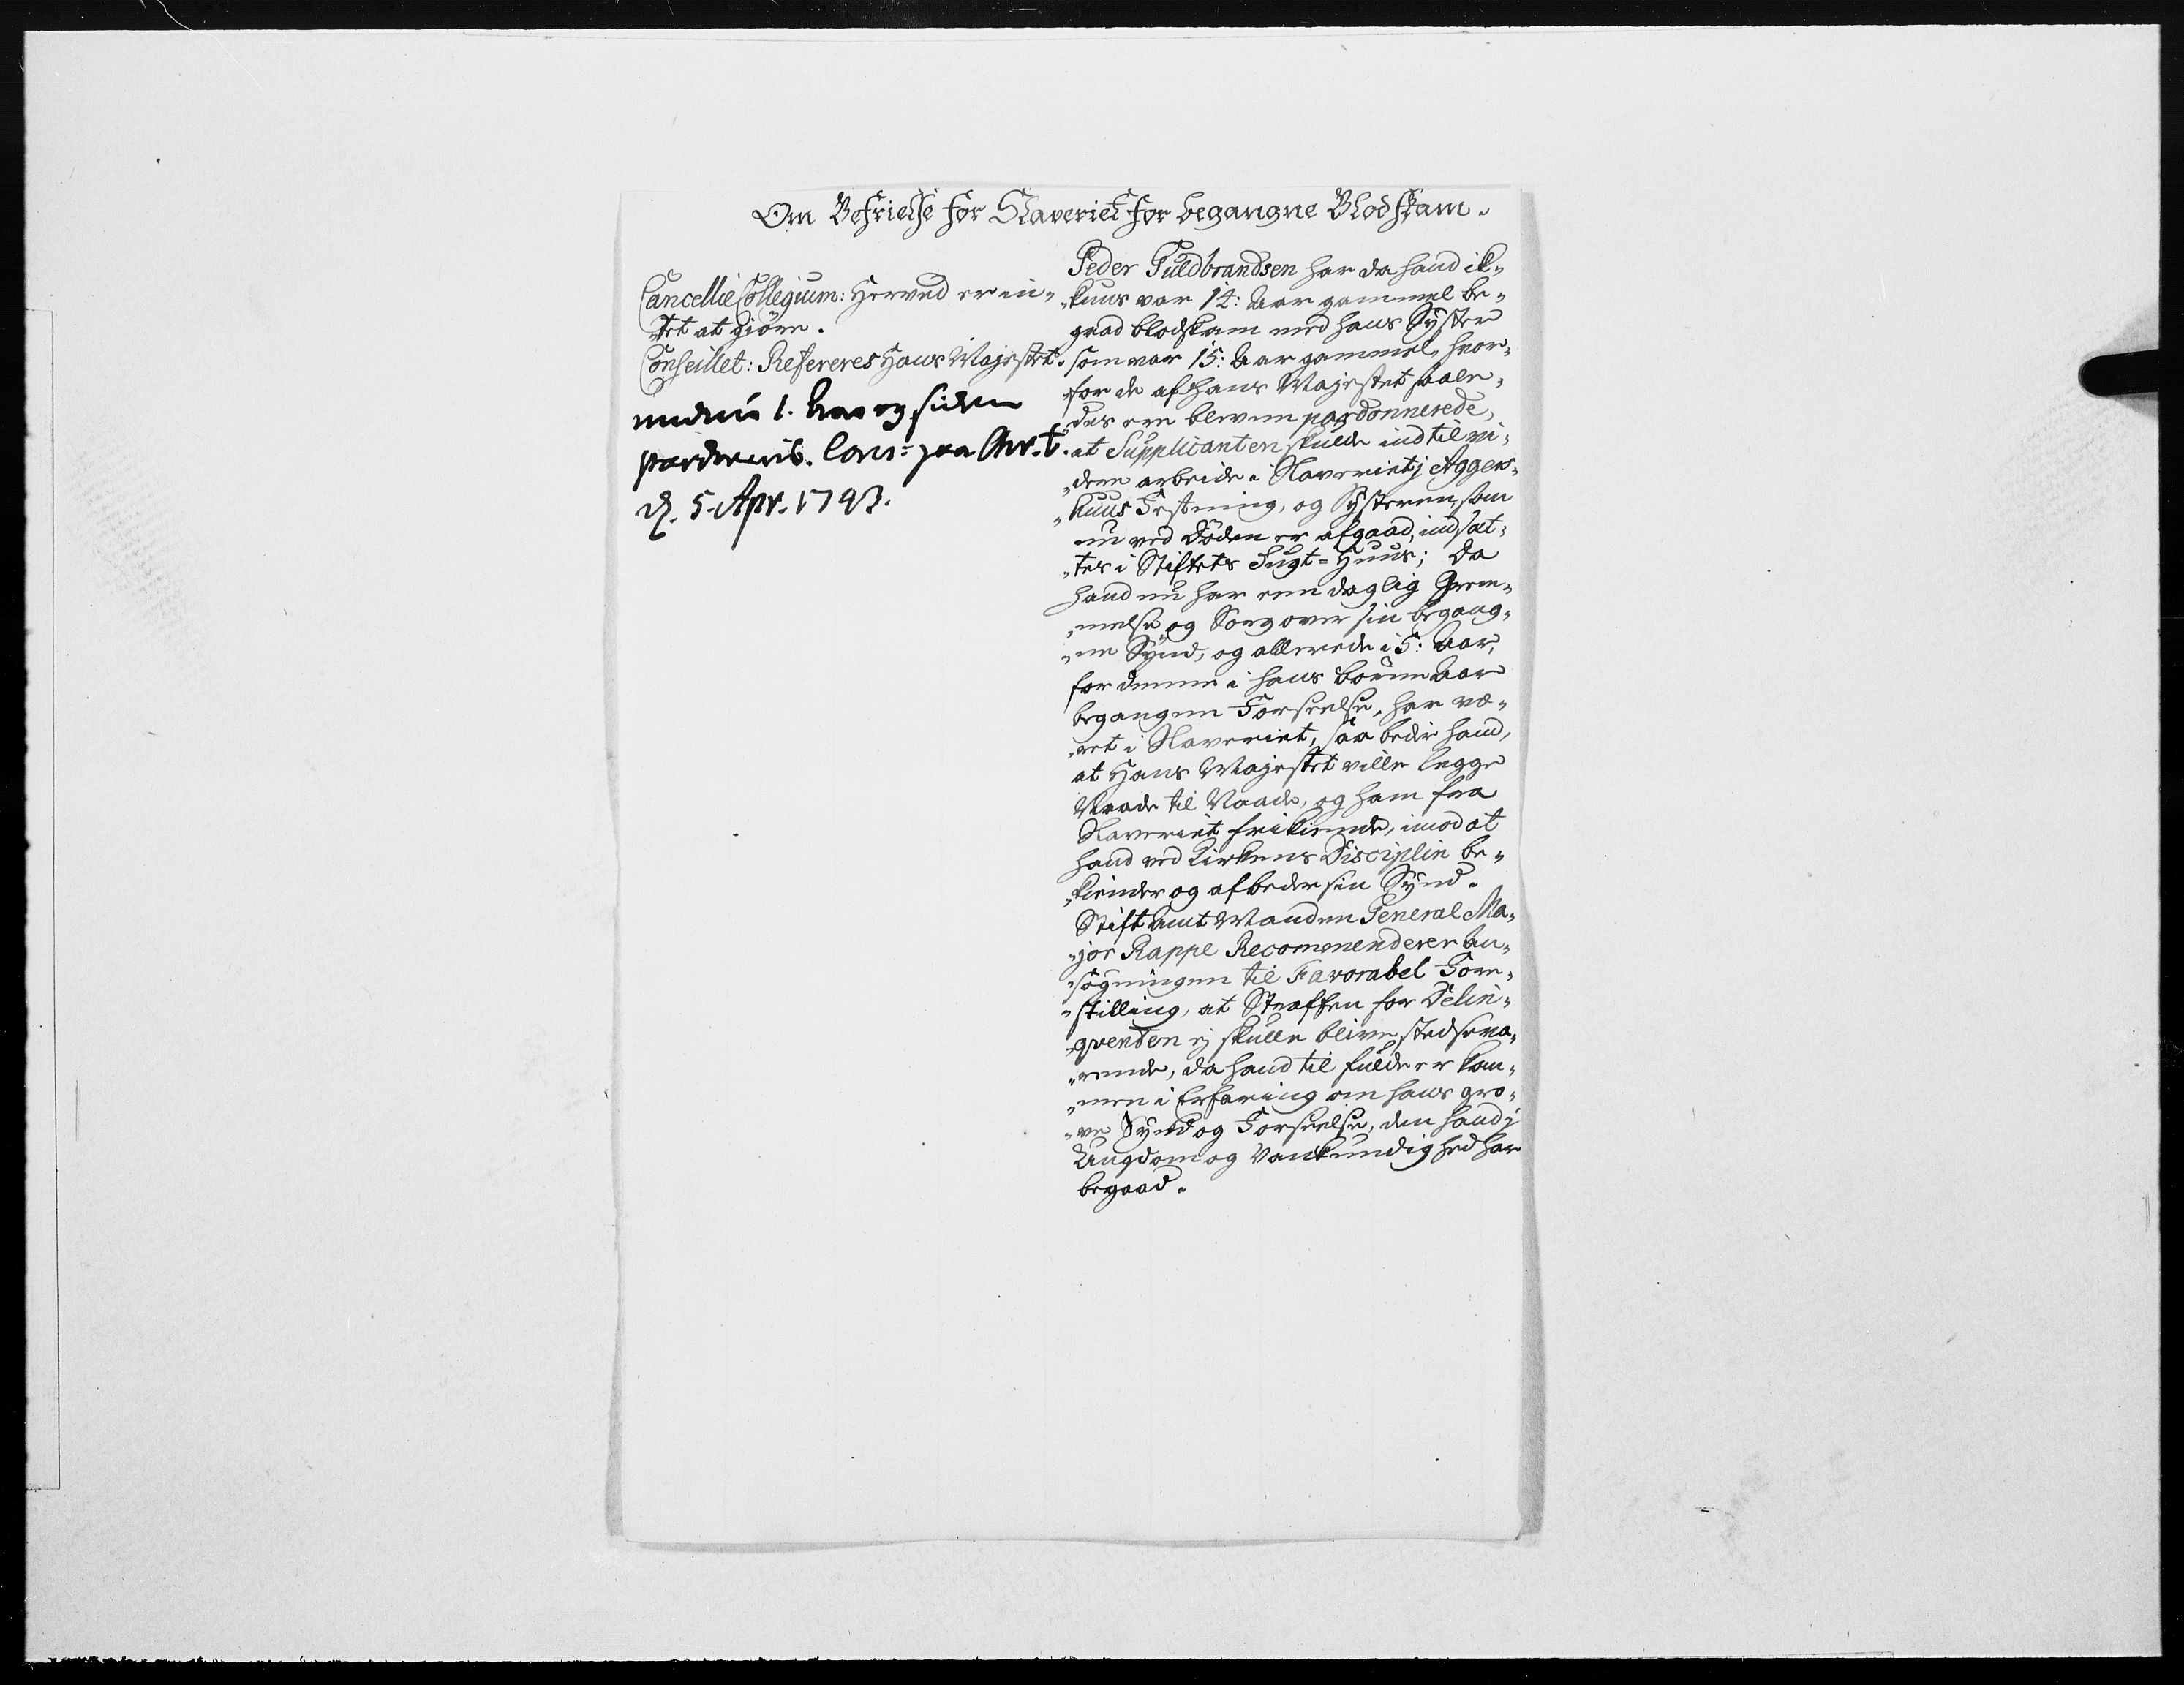 Om Befrielse for Slaveriet for begangne Blodskam.
Cancellie Collegium: Herved er in-
-tet at giöre.
Conseillet: Refereres Hans Majestet.
endnu 1. Aar og siden
pardoneris. Cons: paa Chr.
d. 5. Apr. 1743.
Peder Guldbrandsen har da hand ik-
-kuns var 14: Aar gammel be-
gaad blodskam med hans Syster
som var 15: Aar gammel, hvor-
-for de af Hans Majestet saale-
-des ere bleven pardonnerede,
at Supplicanten skulde indtil vi-
-dere arbeide i Slaveriet j Aggers-
-huus Festning, og Systeren, som
nu ved Döden er afgaad, indsæt-
-tes i Stiftets Tugt-Huus; Da
hand nu har een daglig Grem-
-melse og Sorg over sin begang-
-ne Synd, og allerede i 5: Aar,
for denne i hans börne Aar
begangen Forseelse, har væ-
-ret i Slaveriet, saa beder hand,
at Hans Majestet ville legge
Naade til Naade, og ham fra
Slaveriet frikiende, imod at
hand ved Kirkens Disciplin be-
-kiender og afbeder sin Synd.
Stift Amt Manden General Ma-
-jor Rappe Recommenderer An-
-sögningen til Favorabel Fore-
-stilling, at Straffen for Delin-
-qventen ej skulle blive stedseva-
-rende, da hand til fulde er kom-
-men i Erfaring om hans gro-
-ve Synd og Forseelse, den hand j
Ungdom og Vankundighed har
begaad.